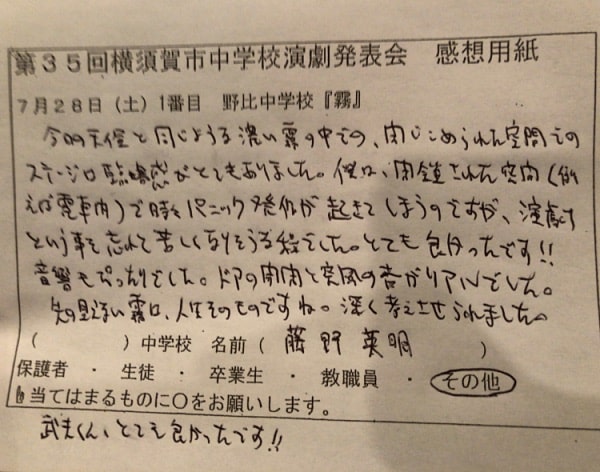 第35回横須賀市中学校演劇発表会 感想用紙
7月28日(土)1番目 野比中学校『霧』
今日の天候と同じような濃い霧の中での、閉じこめられた空間での
ステージは臨場感がとてもありました。僕は、閉鎖された空間(例
えば電車内)で時々パニック発作が起きてしまうのですが、演劇だ
という事を忘れて苦しくなりそうな程でした。とても良かったです!!
音響もぴったりでした。ドアの開閉と突風の音がリアルでした。
先の見えない霧は、人生そのものですね。深く考えさせられました。
( )中学校 名前( 藤野英明 )
保護者 ・ 生徒 ・ 卒業生 ・ 教職員 ・ その他
当てはまるものに○をお願いします。
武夫くん、とても良かったです!!